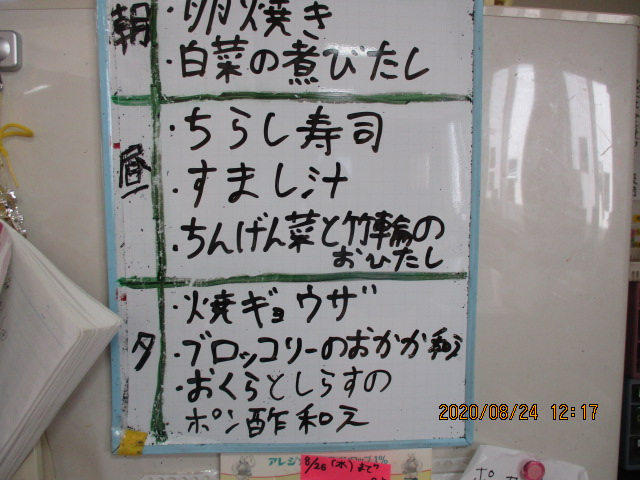 朝
・卵焼き
・白菜の煮びたし
昼
・ちらし寿司
・すまし汁
・ちんげん菜と竹輪の
おひたし
夕
・焼ギョウザ
・ブロッコリーのおかか和え
・おくらとしらすの
ポン酢和え
2020/08/24 12:17
アレジ
1%
8/26 (水) まで
ポ